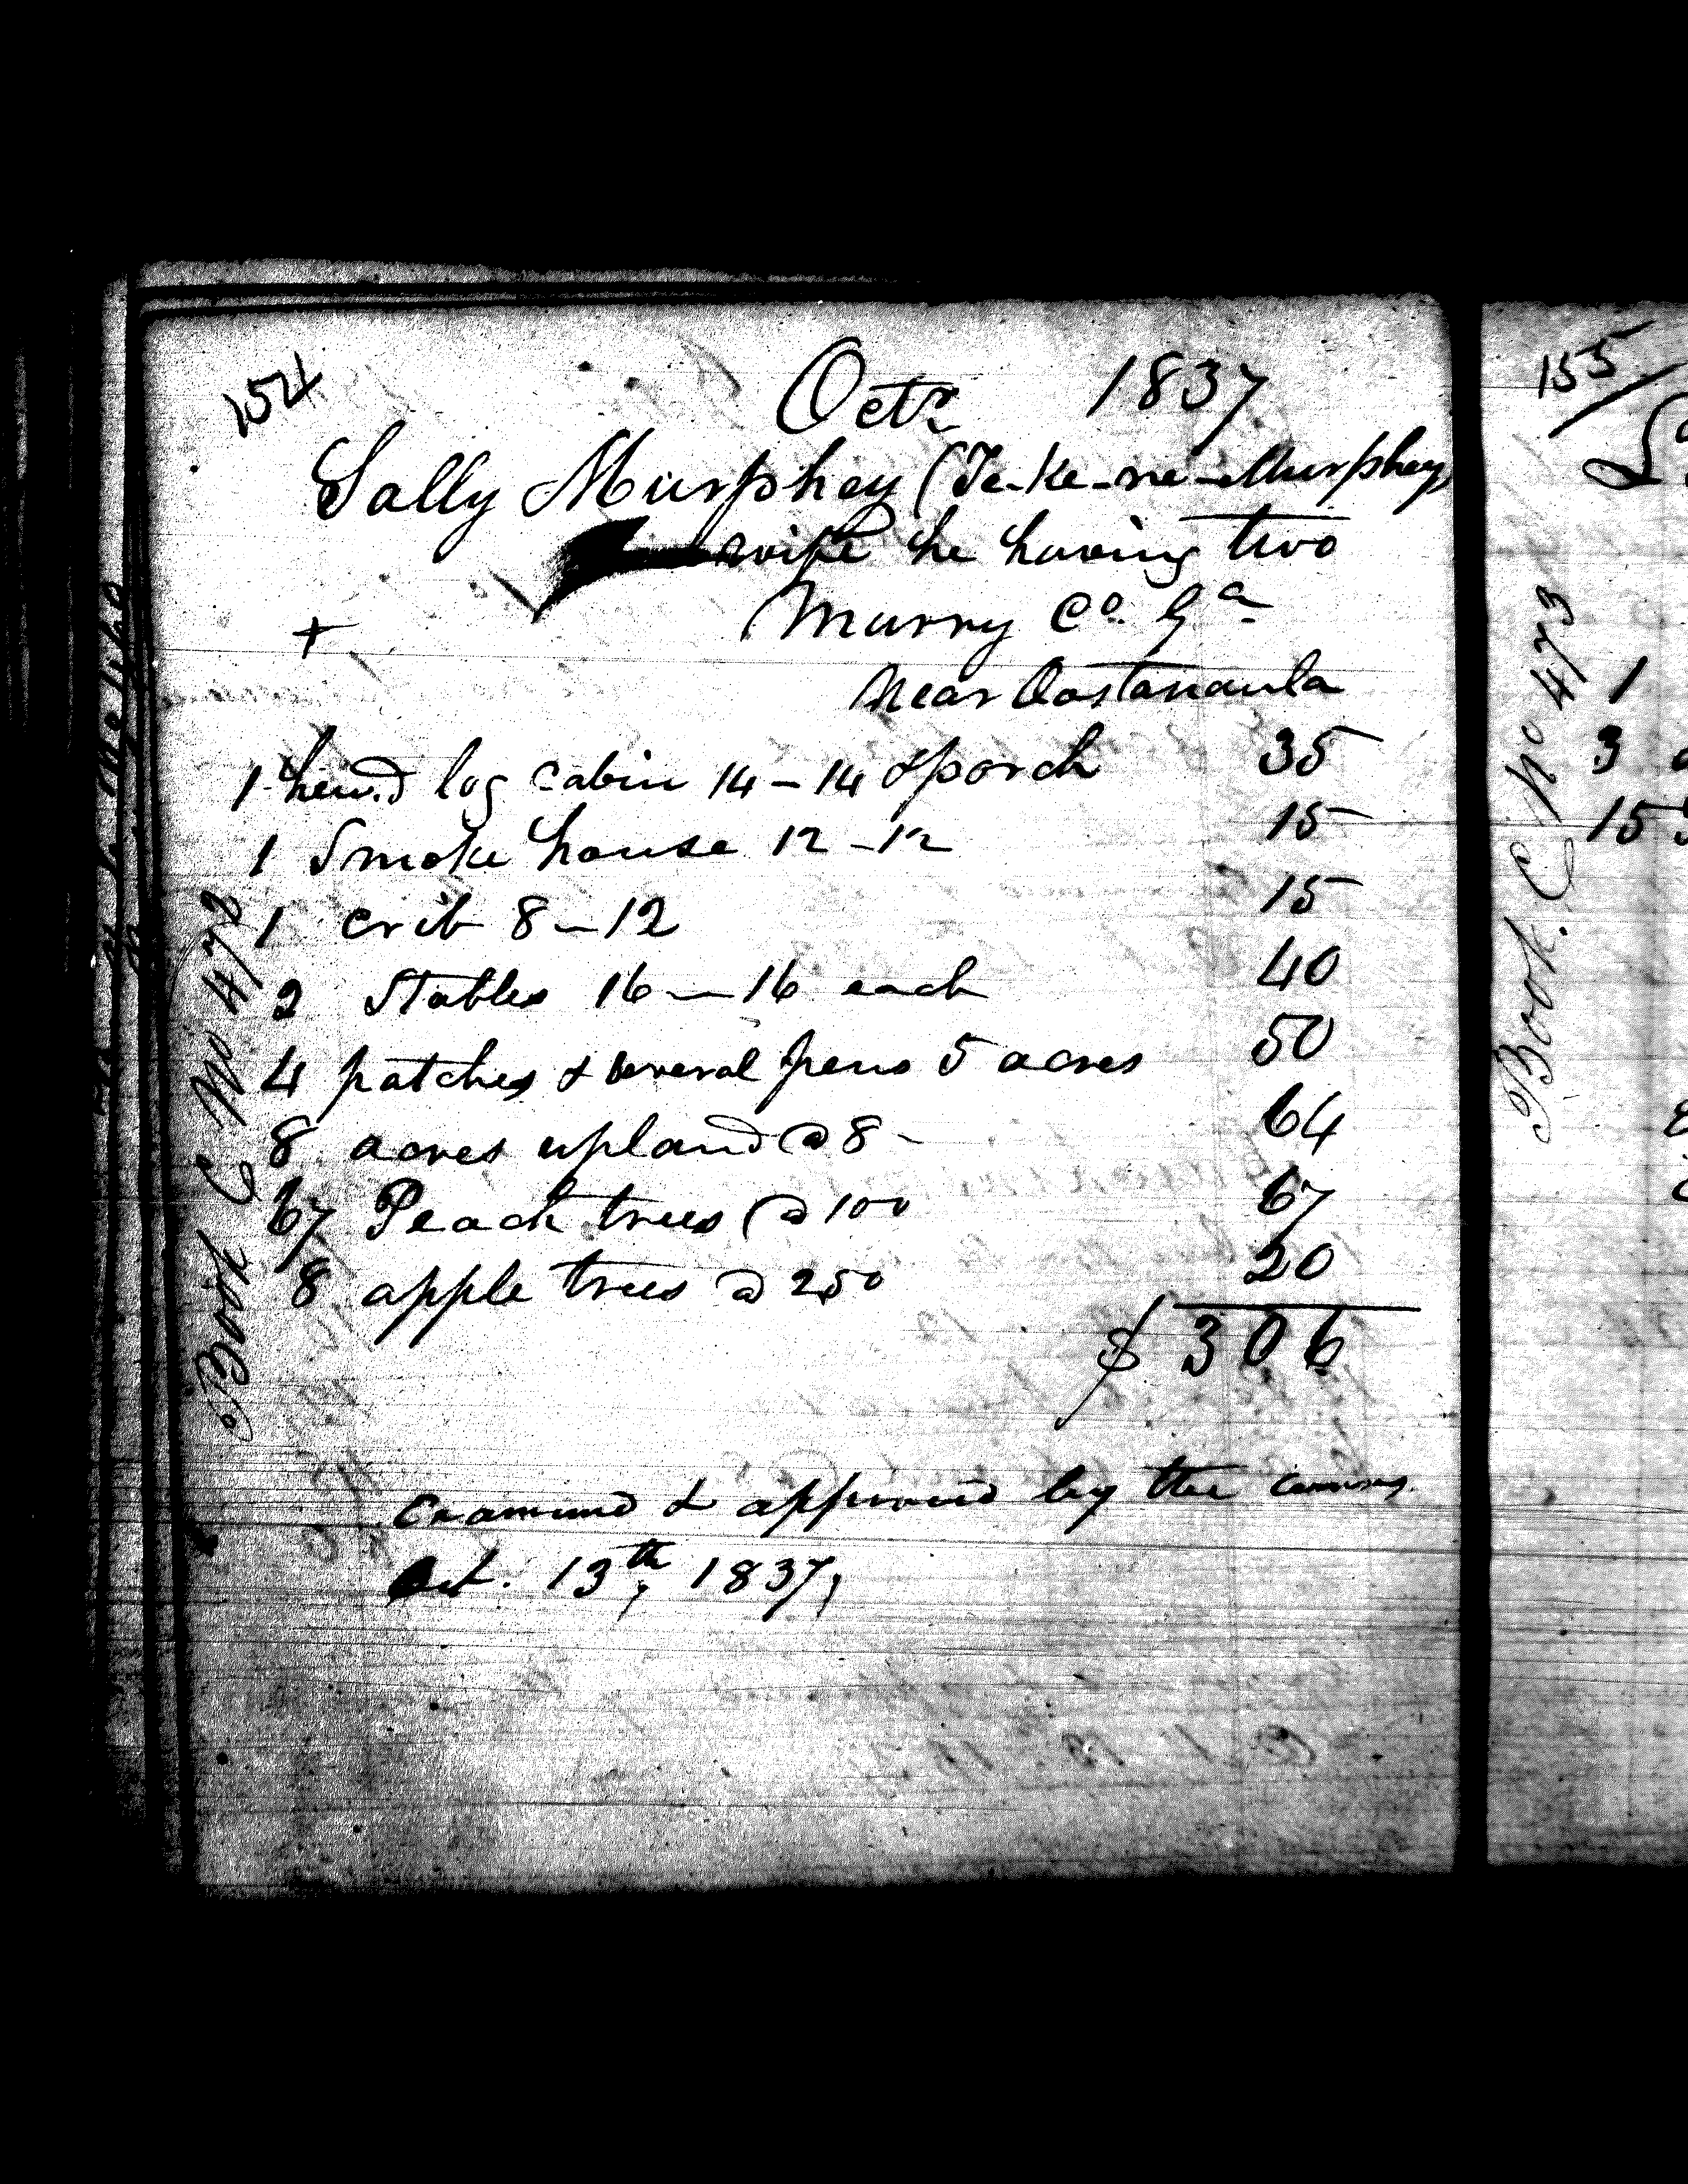 154
Octr 1837
Sally Murphey (Te-ke-ne-Murphey)
wife he having two
Murry Co. Ga
near Oostanaula
1 hewd log cabin 14-14 & porch 35
1 Smoke house 12-12 15
1 crib 8-12 15
2 Stables 16-16 each 40
4 patches & several pens 5 acres 50
8 acres upland @ 8- 64
67 Peach trees @ 100 67
8 apple trees @ 250 20
$ 306
Examined & approved by the Commrs.
Oct. 13th, 1837,
Book C No 472
+
155
Book C No 473
1
3
15